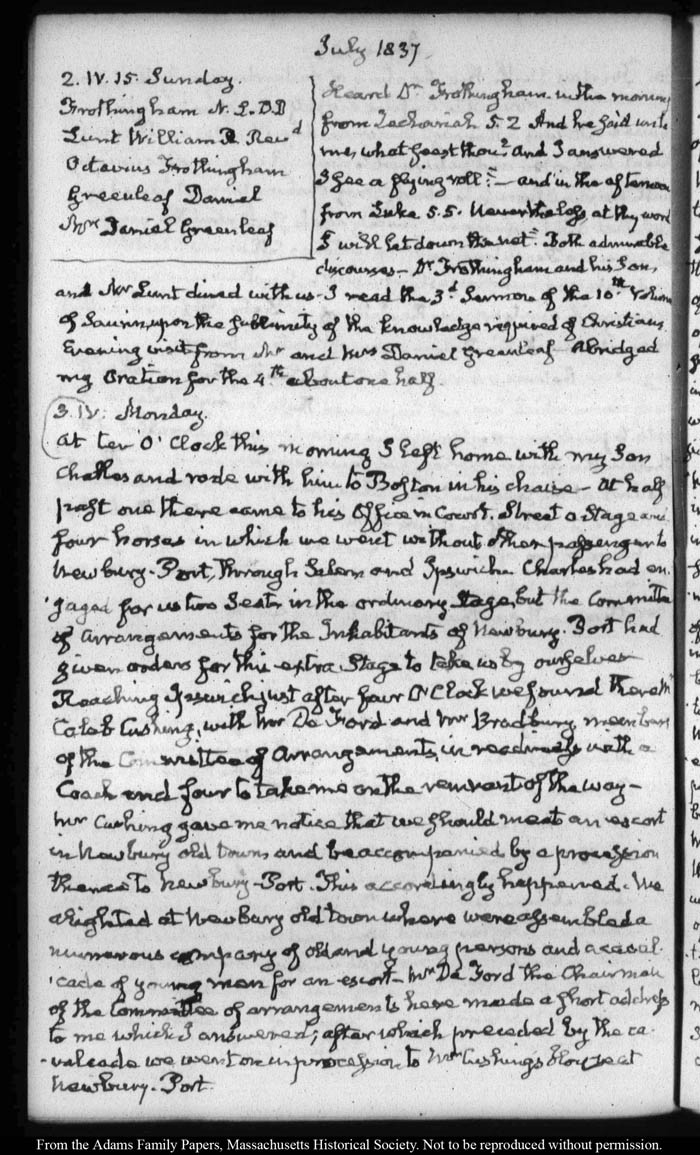 July 1837
2. IV. 15. Sunday.
Frothingham N. L. D.D
Lunt William P. Revd
Octavius Frothingham
Greenleaf Daniel
Mrs Daniel Greenleaf
Heard Dr Frothingham in the morning
from Zechariah 5. 2 And he said unto
me, what seest thou? And I answered
I see a flying roll:— and in the afternoon
from Luke 5. 5. Nevertheless at thy word
I will let down the net. Both admirable
discourses— Dr Frothingham and his Son,
and Mr Lunt dined with us. I read the 3d Sermon of the 10th Volume
of Saurin, upon the sublimity of the knowledge required of Christians.
Evening visit from Mr and Mrs Daniel Greenleaf. Abridged
my Oration for the 4th about one half.
3. IV. Monday.
At ten O'Clock this morning I left home with my Son
Charles and rode with him to Boston in his chaise— At half
past one there came to his Office in Court Street a Stage and
four horses in which we went without other passengers to
Newbury-Port, through Salem and Ipswich. Charles had en-
gaged for us two Seats in the ordinary Stage, but the Committee
of Arrangements for the Inhabitants of Newbury-Port had
given orders for this extra Stage to take us by ourselves
Reaching Ipswich just after four O'Clock we found there Mr
Caleb Cushing, with Mr De Ford and Mr Bradbury members
of the Committee of Arrangements, in readiness with a
Coach and four to take me on the remnant of the way—
Mr Cushing gave me notice that we should meet an escort
in Newbury old town and be accompanied by a procession
thence to Newbury-Port. This accordingly happened. We
alighted at Newbury old town where were assembled a
numerous company of old and young persons and a caval-
cade of young men for an escort— Mr De Ford the Chairman
of the Committee of arrangements here made a short address
to me which I answered; after which preceded by the ca-
valcade we went on in procession to Mr Cushing's house at
Newbury-Port.
From the Adams Family Papers, Massachusetts Historical Society. Not to be reproduced without permission.